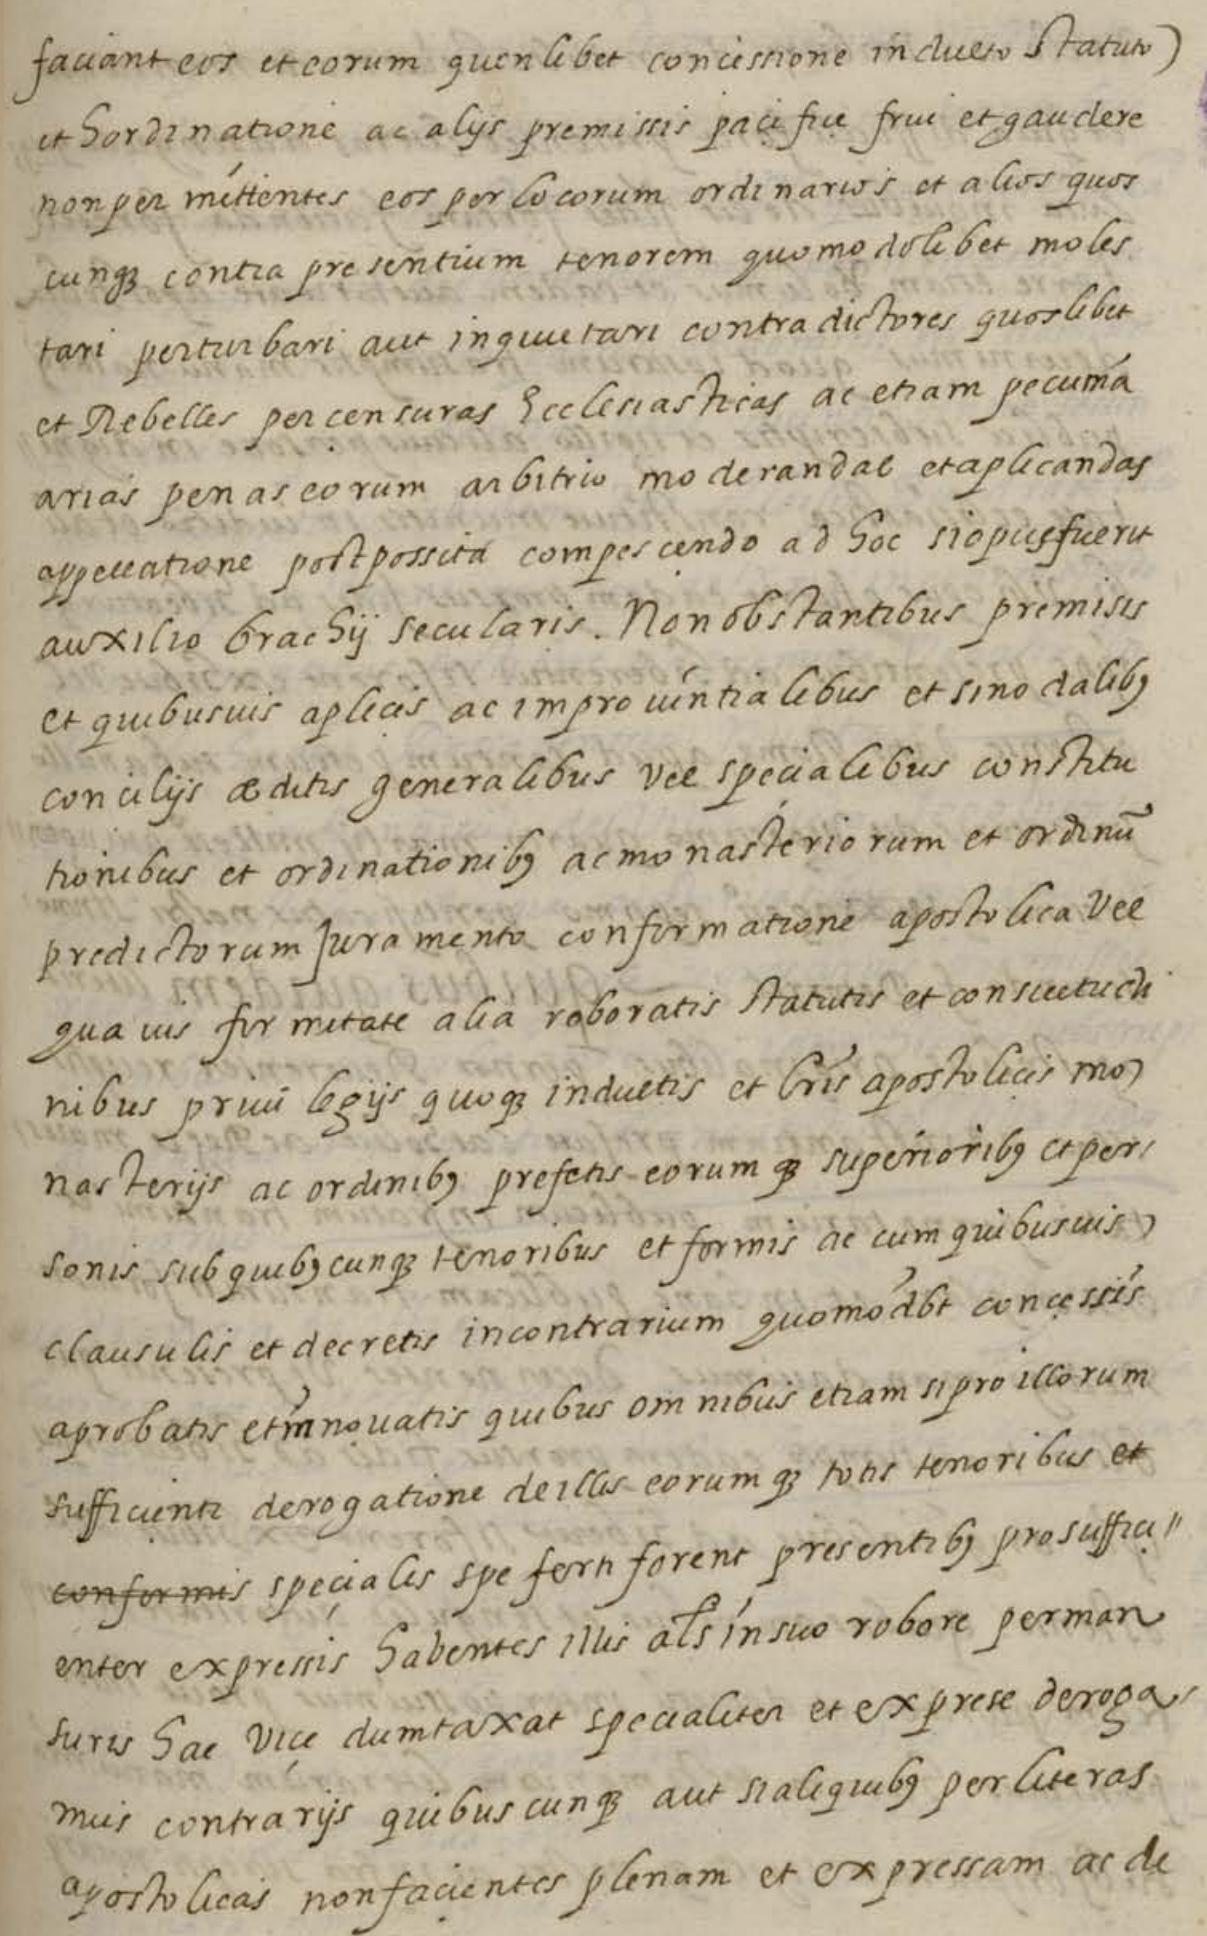 faciant eos et eorum quenlibet concessione indueto statuto
et hordinatione ac alijs premissis pacifice frui et gaudere
non per mittentes eos per locorum ordinarios et alios quos
cunq3 contra presentium tenorem quomodolibet moles
tari perturbari aut inquietari contradictores quoslibet
et Rebelles per censuras Ecclesiasticas ac etiam pecunia
arias penas eorum arbitrio moderandae et aplicandas
appellatione postpossita compescendo ad hoc si opus fuerit
auxilio brachij secularis. Non obstantibus premisis
et quibusuis aplicis ac improuintialibus et sinodalib9
concilijs æditis generalibus vel specialibus constitu
tionibus et ordinationib9 ac monasteriorum et ordinũ
predictorum Juramento confirmatione apostolica vel
quauis firmitate alia roboratis statutis et consuetudi
nibus priuilegijs quoq3 indultis et lris apostolicis mo
nasterijs ac ordinib9 prefetis eorumq3 superiorib9 et per
sonis sub quib9cunq3 tenoribus et formis ac cum quibusuis
clausulis et decretis incontrarium quomodbt concessis
aprobatis et innouatis quibus omnibus etiam si pro illorum
sufficienti derogatione de illis eorumq3 totis tenoribus et
conformis specialis spe ferti forent presentib9 pro suffici
enter expressis habentes illis als in suo robore perman
suris hac vice dumtaxat specialiter et exprese deroga
mus contrarijs quibuscunq3 aut si aliquib9 per literas
apostolicas non facientes plenam et expressam ac de